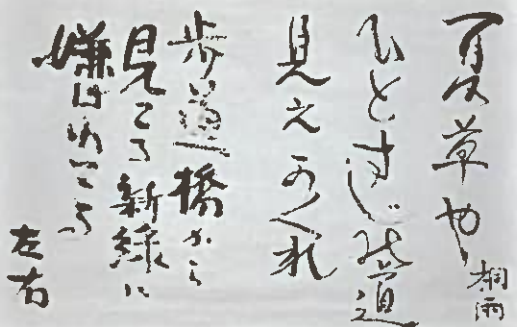 夏草や
桐雨
ひとすじの道
見えかくれ
歩道橋から
見てる新緑に
嫌はれてる
左右